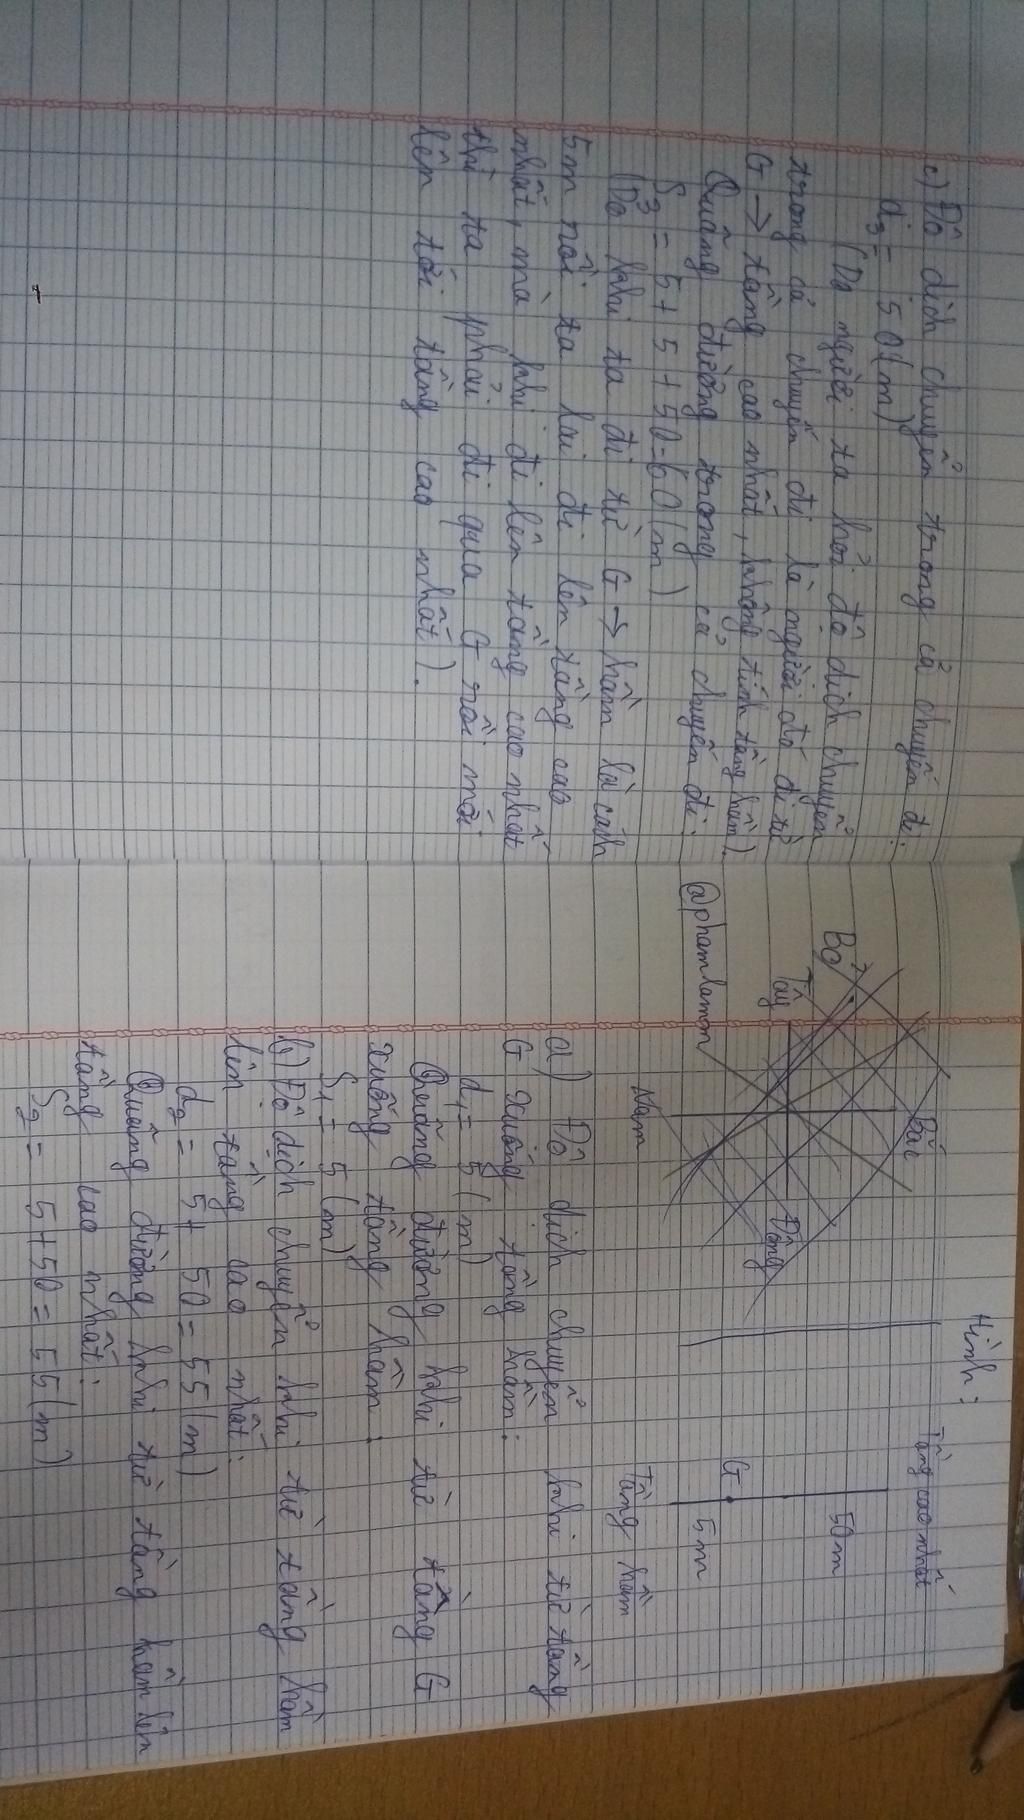 c) Độ dịch chuyển trong cả chuyến đi:
d₃ = 50 (m)
(Do người ta hỏi độ dịch chuyển
trong cả chuyến đi là người đó đi từ
G → tầng cao nhất, không tính tầng hầm).
Quãng đường trong cả chuyến đi:
S₃ = 5 + 5 + 50 = 60 (m)
(Do khi ta đi từ G → hầm là cách
5m rồi ta lại đi lên tầng cao
nhất, mà khi đi lên tầng cao nhất
thì ta phải đi qua G rồi mới
lên tới tầng cao nhất).
Hình:
Bắc
Tây
Đông
Nam
@phamlamon
Tầng cao nhất
50m
G
5m
Tầng hầm
a) Độ dịch chuyển khi từ tầng
G xuống tầng hầm:
d₁ = 5 (m)
Quãng đường khi từ tầng G
xuống tầng hầm:
S₁ = 5 (m)
b) Độ dịch chuyển khi từ tầng hầm
lên tầng cao nhất:
d₂ = 5 + 50 = 55 (m)
Quãng đường khi từ tầng hầm lên
tầng cao nhất:
S₂ = 5 + 50 = 55 (m)